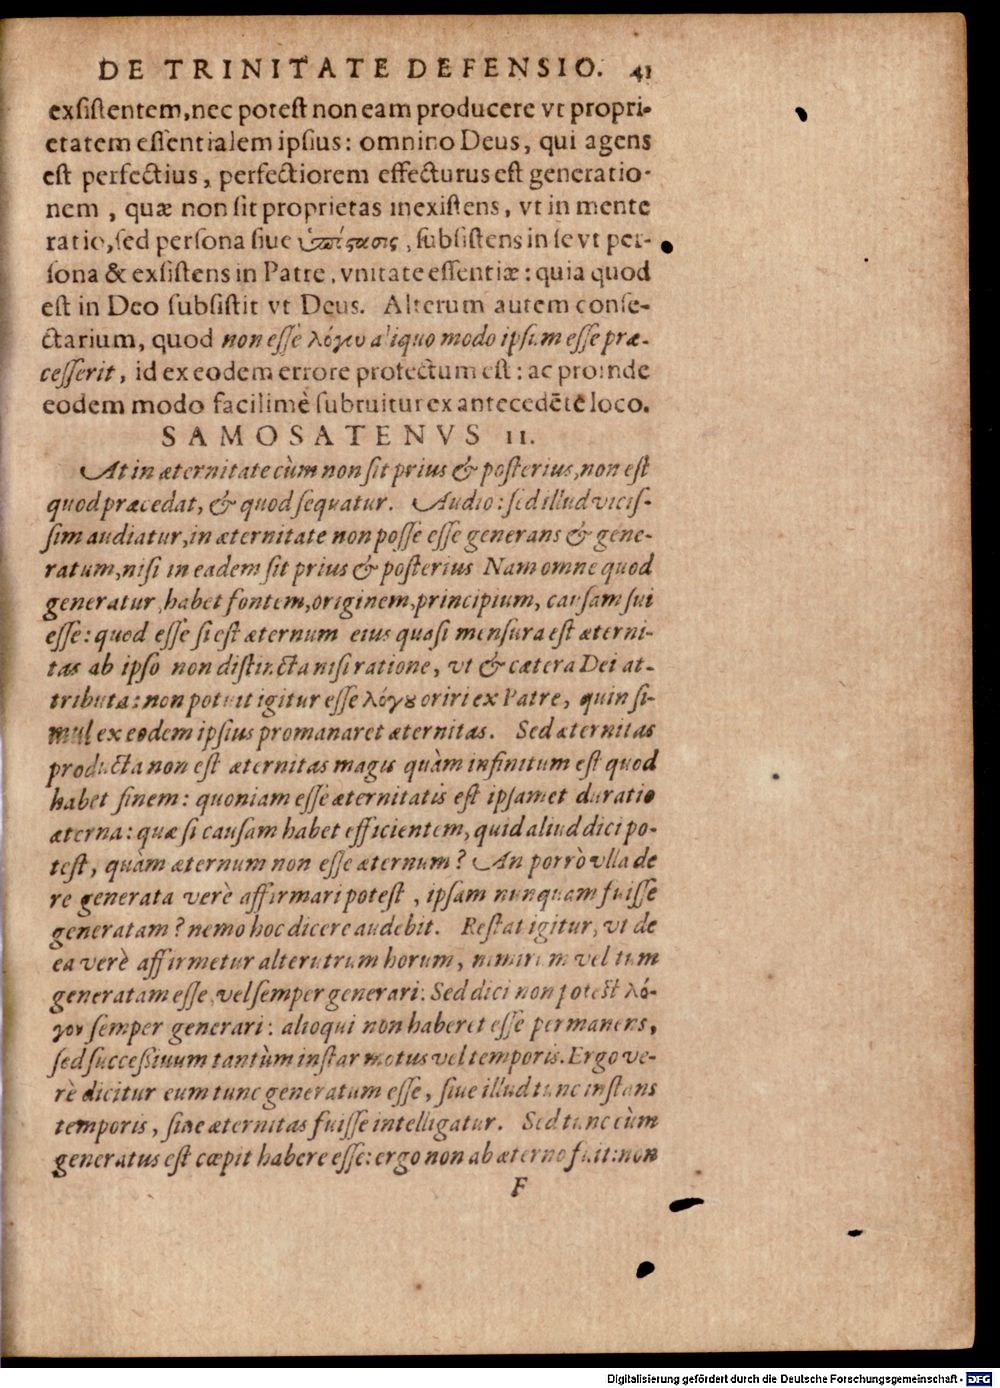 DE TRINITATE DEFENSIO. 41
exsistentem, nec potest non eam producere vt propri-
etatem essentialem ipsius: omnino Deus, qui agens
est perfectius, perfectiorem effecturus est generatio-
nem, quæ non sit proprietas inexistens, vt in mente
ratio, sed persona siue ὑπόστασις, subsistens in se vt per-
sona & exsistens in Patre, vnitate essentiæ: quia quod
est in Deo subsistit vt Deus. Alterum autem conse-
ctarium, quod non esse λόγου aliquo modo ipsum esse præ-
cesserit, id ex eodem errore profectum est: ac proinde
eodem modo facilimè subruitur ex antecedẽte loco.
SAMOSATENVS II.
At in æternitate cùm non sit prius & posterius, non est
quod præcedat, & quod sequatur. Audio: sed illud vicis-
sim audiatur, in æternitate non posse esse generans & gene-
ratum, nisi in eadem sit prius & posterius Nam omne quod
generatur, habet fontem, originem, principium, causam sui
esse: quod esse si est æternum eius quasi mensura est æterni-
tas ab ipso non distincta nisi ratione, vt & cætera Dei at-
tributa: non potuit igitur esse λόγου oriri ex Patre, quin si-
mul ex eodem ipsius promanaret æternitas. Sed æternitas
producta non est æternitas magis quàm infinitum est quod
habet finem: quoniam esse æternitatis est ipsamet duratio
æterna: quæ si causam habet efficientem, quid aliud dici po-
test, quàm æternum non esse æternum? An porrò vlla de
re generata verè affirmari potest, ipsam nunquam fuisse
generatam? nemo hoc dicere audebit. Restat igitur, vt de
ea verè affirmetur alterutrum horum, nimirum vel tum
generatam esse, vel semper generari: Sed dici non potest λό-
γον semper generari: alioqui non haberet esse permanens,
sed successiuum tantùm instar motus vel temporis. Ergo ve-
rè dicitur eum tunc generatum esse, siue illud tunc instans
temporis, siue æternitas fuisse intelligatur. Sed tunc cùm
generatus est cœpit habere esse: ergo non ab æterno fuit: non
F
Digitalisierung gefördert durch die Deutsche Forschungsgemeinschaft - DFG